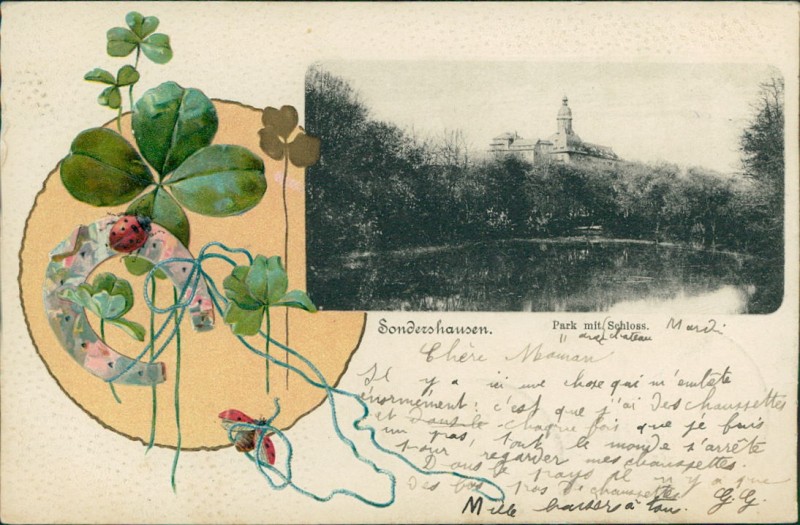 Sondershausen.
Park mit Schloss.
" avec château
Mardi
Chère Maman
Il y a ici une chose qui m'embête
énormément : c'est que j'ai des chaussettes
et dans le chaque fois que je fais
un pas, tout le monde s'arrête
pour regarder mes chaussettes.
Dans le pays il n'y a que
des bas pas de chaussettes
G. G.
Mille baisers à tous.